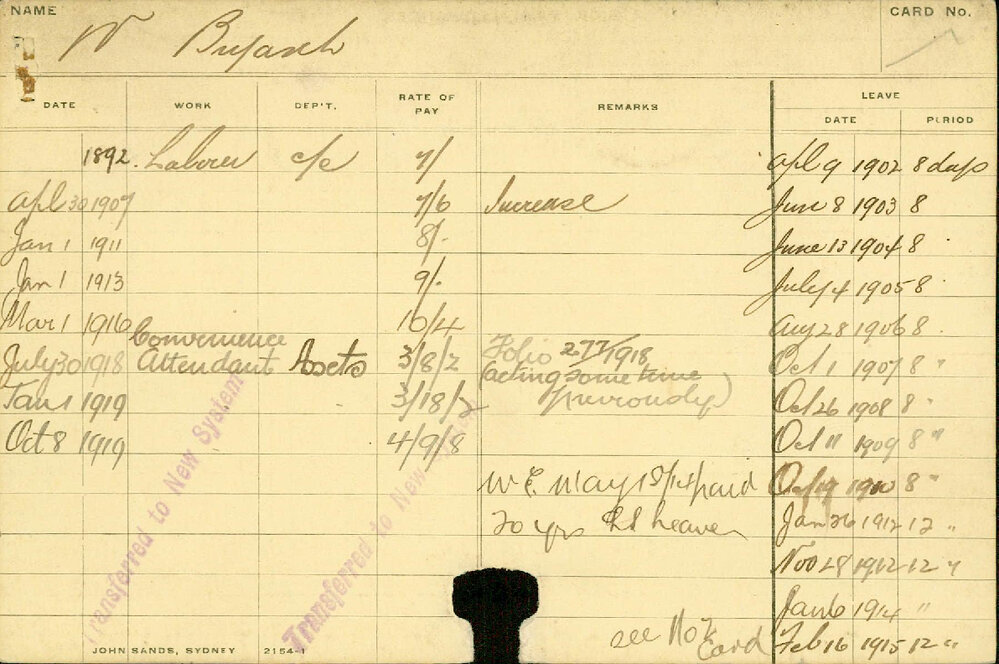 NAME W CARD No.
DATE WORK DEP'T. RATE OF PAY REMARKS LEAVE
DATE PERIOD
1892. Laborer c/e 7/ Apl 9 1902 8 days
Apl 30 1907 7/6 Increase Jun 8 1903 8
Jan 1 1911 8/- June 13 1904 8
Jan 1 1913 9/- July 4 1905 8
Mar 1 1916 10/4 Aug 28 1906 8
July 30 1918 Convenience Attendant Assets 3/8/2 Folio 277/1918 Oct 1 1907 8 "
(acting some time previously)
Jan 1 1919 3/18/2 Oct 26 1908 8 "
Oct 8 1919 4/9/8 Oct 11 1909 8 "
W.E. May 18/14 paid Oct 19 1910 8 "
20 yrs leave Jan 26 1912 12 "
Nov 28 1912 12 "
Jan 6 1914 "
see No 2 Card Feb 16 1915 12 "
Transferred to New System
Transferred to New
JOHN SANDS, SYDNEY 2154-1